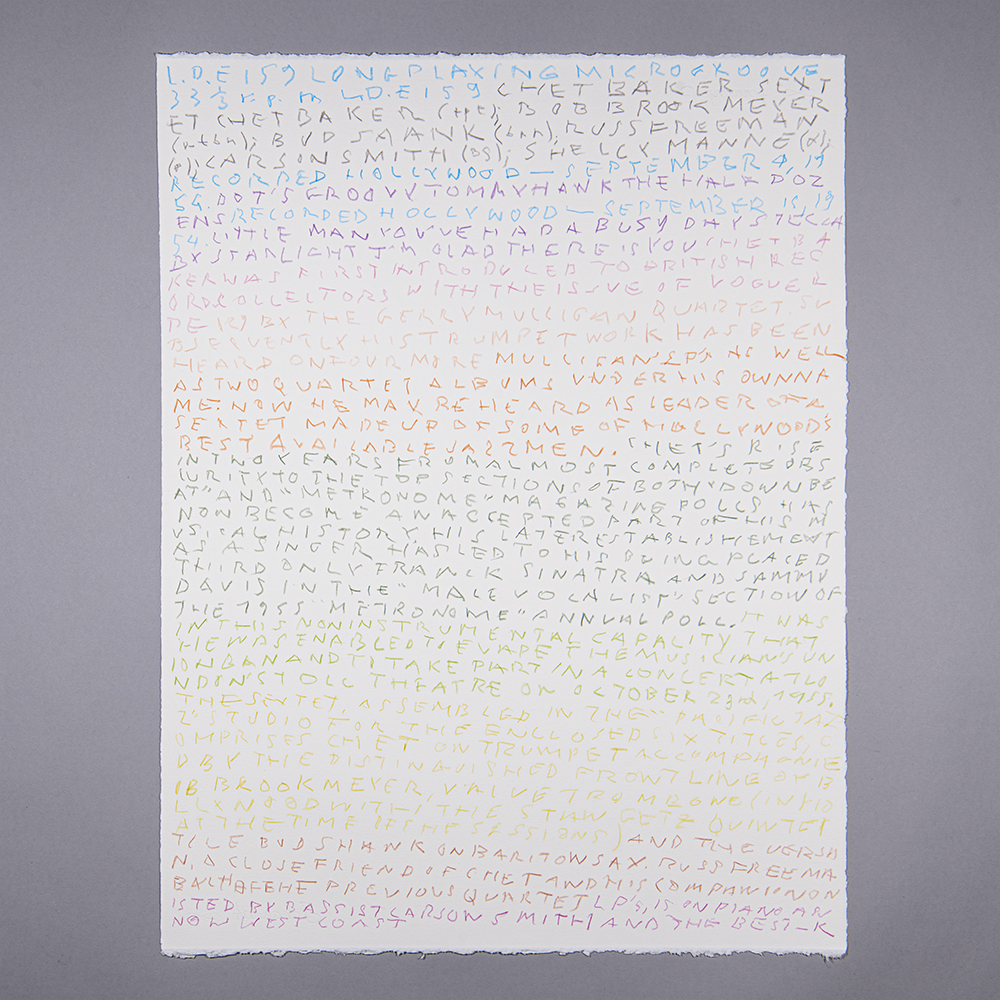 L.D.E 159 LONG PLAXING MICROGXOOVE
33 1/3 r.p.m L.D.E 159 CHET BAKER SEXT
ET CHET BAKER (tpt); BOB BROOKMEYER
(v-tbn); BUD SAANK (brn); RUSS FREEMAN
(p); CARSON SMITH (bs); SHELLY MANNE (d);
RECORDED HOLLYWOOD — SEPTEMBER 4, 19
54. DOT'S GROOVY TOMMYHANK THE HALF DOZ
ENS RECORDED HOLLYWOOD — SEPTEMBER 15, 19
54. LITTLE MAN YOU'VE HAD A BUSY DAY STELLA
BY STARLIGHT I'M GLAD THERE IS YOU CHET BA
KER WAS FIRST INTRODUCED TO BRITISH REC
ORD COLLECTORS WITH THE ISSVE OF VOGUE L
DE 29 BY THE GERRY MULLIGAN QUARTET. SU
BSERVENTLY HIS TRUMPET WORK HAS BEEN
HEARD ON FOUR MORE MULLIGAN'S LP'S AS WELL
AS TWO QUARTET ALBUMS VNDER HIS OWN NA
ME. NOW HE MAY BE HEARD AS LEADER OF A,
SEXTET MADE UP OF SOME OF HOLLYWOOD'S
BEST AVAILABLE JAZZMEN. CHET'S RISE
IN TWO YEARS FROM ALMOST COMPLETE OBS
IURITY TO THE TOP SECTIONS OF BOTH "DOWN BE
AT" AND "METRONOME" MAGAZINE POLLS HAS
NOW BECOME AN ACCEPTED PART OF HIS M
VSICAL HISTORY HIS LATER ESTABLISHEMENT
AS A SINGER HAS LED TO HIS BEING PLACED
THIRD ONLY FRANCK SINATRA AND SAMMY
DAVIS IN THE "MALE VOCALIST" SECTION OF
THE 1955 "METRONOME" ANNVAL POLL. IT WAS
IN THIS NONINSTRUMENTAL CAPALITY THAT
HE WAS ENABLED TO EVAPE THE MUSICIAN'S UN
ION BAN AND TO TAKE PART IN A CONCERT AT LO
NDON'S TOLL THEATRE ON OCTOBER 23rd, 1955.
THE SEXTET, ASSEMBLED IN THE "PACIFIC JAZ
Z" STUDIO FOR THE ENCLOSED SIX TITLES, C
OMPRISES CHET ON TRUMPET ACCOMPANIE
D BY THE DISTINGUISHED FRONT LINE OF B
OB BROOKMEYER, VALVE TROMBONE (IN HO
LLY WOOD WITH THE STAN GETZ QUINTET
AT THE TIME OF THE SESSIONS) AND THE VERSA
TILE BUD SHANK ON BARITON SAX. RUSS FREEMA
N, A CLOSE FRIEND OF CHET AND HIS COMPANION ON
BALTH OF THE PREVIOUS QUARTET LP'S, IS ON PIANO AN
ISTED BY BASSIST CARSON SMITH AND THE BEST-K
NOW WEST COAST